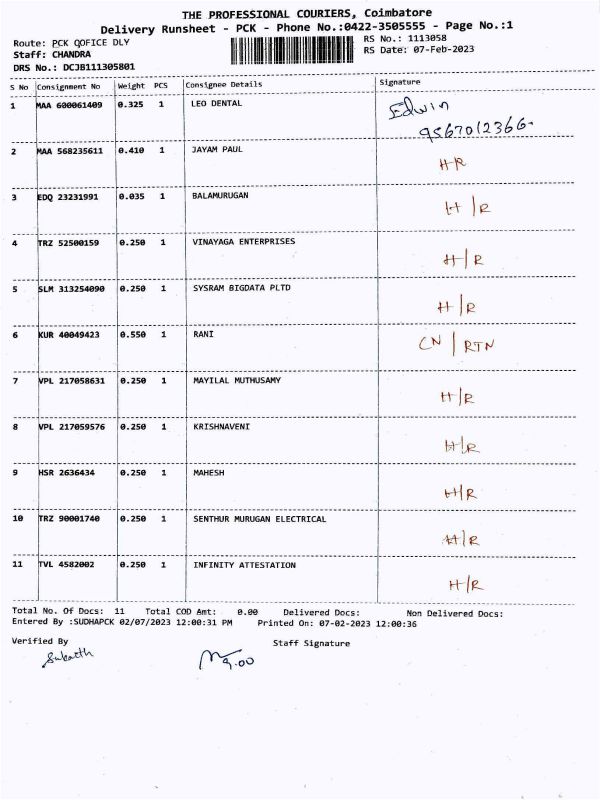 THE PROFESSIONAL COURIERS, Coimbatore
Delivery Runsheet - PCK - Phone No.:0422-3505555 - Page No.:1
Route: PCK QOFICE DLY RS No.: 1113058
Staff: CHANDRA RS Date: 07-Feb-2023
DRS No.: DCJB111305801
S No Consignment No Weight PCS Consignee Details Signature
1 MAA 600061409 0.325 1 LEO DENTAL Edwin
9567012366-
2 MAA 568235611 0.410 1 JAYAM PAUL H/R
3 EDQ 23231991 0.035 1 BALAMURUGAN H/R
4 TRZ 52500159 0.250 1 VINAYAGA ENTERPRISES H/R
5 SLM 313254090 0.250 1 SYSRAM BIGDATA PLTD H/R
6 KUR 40049423 0.550 1 RANI CN/RTN
7 VPL 217058631 0.250 1 MAYILAL MUTHUSAMY H/R
8 VPL 217059576 0.250 1 KRISHNAVENI H/R
9 HSR 2636434 0.250 1 MAHESH H/R
10 TRZ 90001740 0.250 1 SENTHUR MURUGAN ELECTRICAL H/R
11 TVL 4582002 0.250 1 INFINITY ATTESTATION H/R
Total No. Of Docs: 11 Total COD Amt: 0.00 Delivered Docs: Non Delivered Docs:
Entered By :SUDHAPCK 02/07/2023 12:00:31 PM Printed On: 07-02-2023 12:00:36
Verified By Staff Signature
9.00